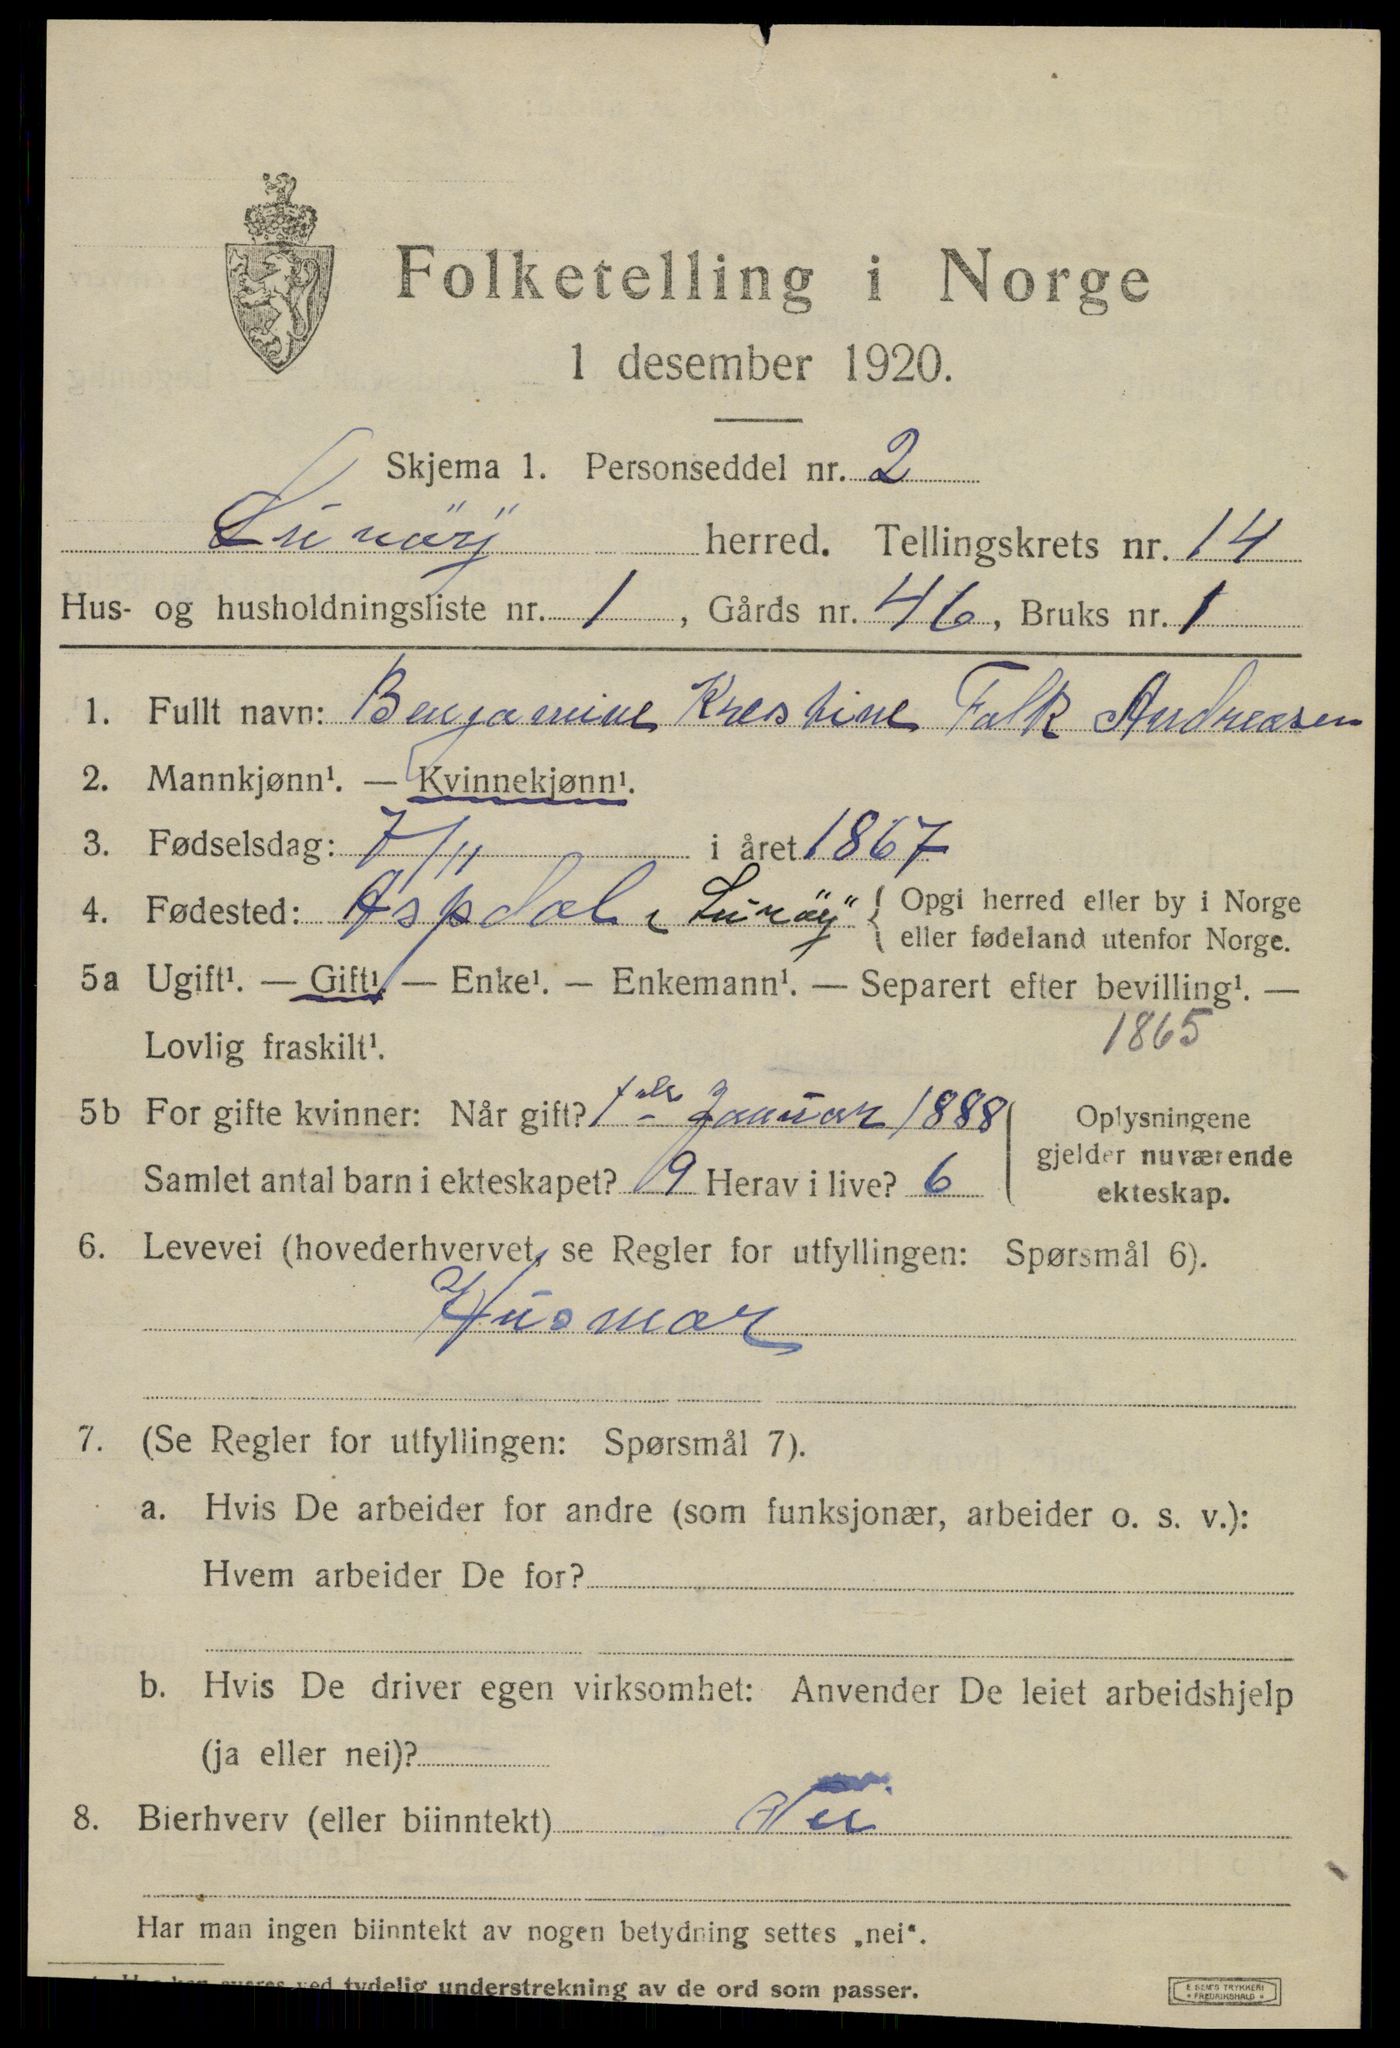 Folketelling i Norge
1 desember 1920.
Skjema 1. Personseddel nr. 2
Lurøy herred. Tellingskrets nr. 14
Hus- og husholdningsliste nr. 1, Gårds nr. 46, Bruks nr. 1
1. Fullt navn: Benjamine Krestine Falk Andreasen
2. Mannkjønn¹. — Kvinnekjønn¹.
3. Fødselsdag: 7/11 i året 1867
4. Fødested: Aspdal i Lurøy { Opgi herred eller by i Norge
eller fødeland utenfor Norge.
5a Ugift¹. — Gift¹. — Enke¹. — Enkemann¹. — Separert efter bevilling¹. —
Lovlig fraskilt¹. 1865
5b For gifte kvinner: Når gift? 1ste Januar 1888
Samlet antal barn i ekteskapet? 9 Herav i live? 6
Oplysningene
gjelder nuværende
ekteskap.
6. Levevei (hovederhvervet, se Regler for utfyllingen: Spørsmål 6).
Husmor
7. (Se Regler for utfyllingen: Spørsmål 7).
a. Hvis De arbeider for andre (som funksjonær, arbeider o. s. v.):
Hvem arbeider De for?
b. Hvis De driver egen virksomhet: Anvender De leiet arbeidshjelp
(ja eller nei)?
8. Bierhverv (eller biinntekt) Nei
Har man ingen biinntekt av nogen betydning settes „nei“.
ved tydelig understrekning av de ord som passer.
E. SEM'S TRYKKERI
* FREDRIKSHALD *